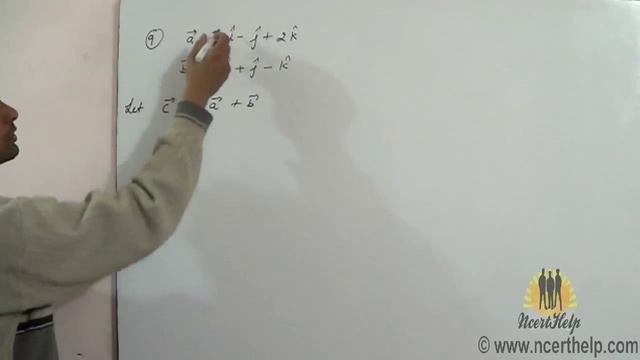 9 a⃗ î - ĵ + 2k̂
b⃗ + ĵ - k̂
Let c⃗ a⃗ + b⃗
NcertHelp
© www.ncerthelp.com